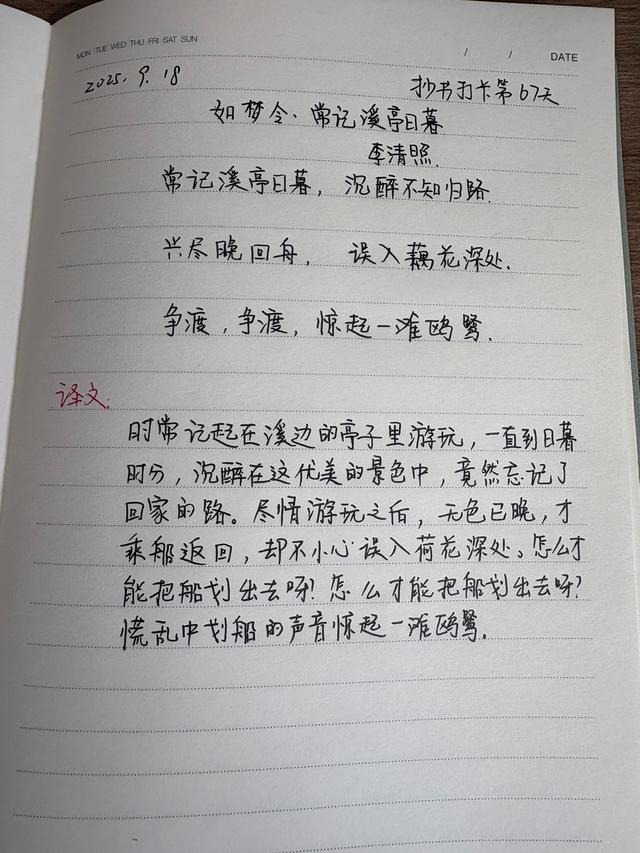 MON TUE WED THU FRI SAT SUN
/ / DATE
2025.9.18 抄书打卡第67天
如梦令·常记溪亭日暮
李清照.
常记溪亭日暮，沉醉不知归路.
兴尽晚回舟， 误入藕花深处.
争渡，争渡，惊起一滩鸥鹭.
译文.
时常记起在溪边的亭子里游玩，一直到日暮
时分，沉醉在这优美的景色中，竟然忘记了
回家的路。尽情游玩之后，无色已晚，才
乘船返回，却不小心误入荷花深处。怎么才
能把船划出去呀？怎么才能把船划出去呀？
慌乱中划船的声音惊起一滩鸥鹭.